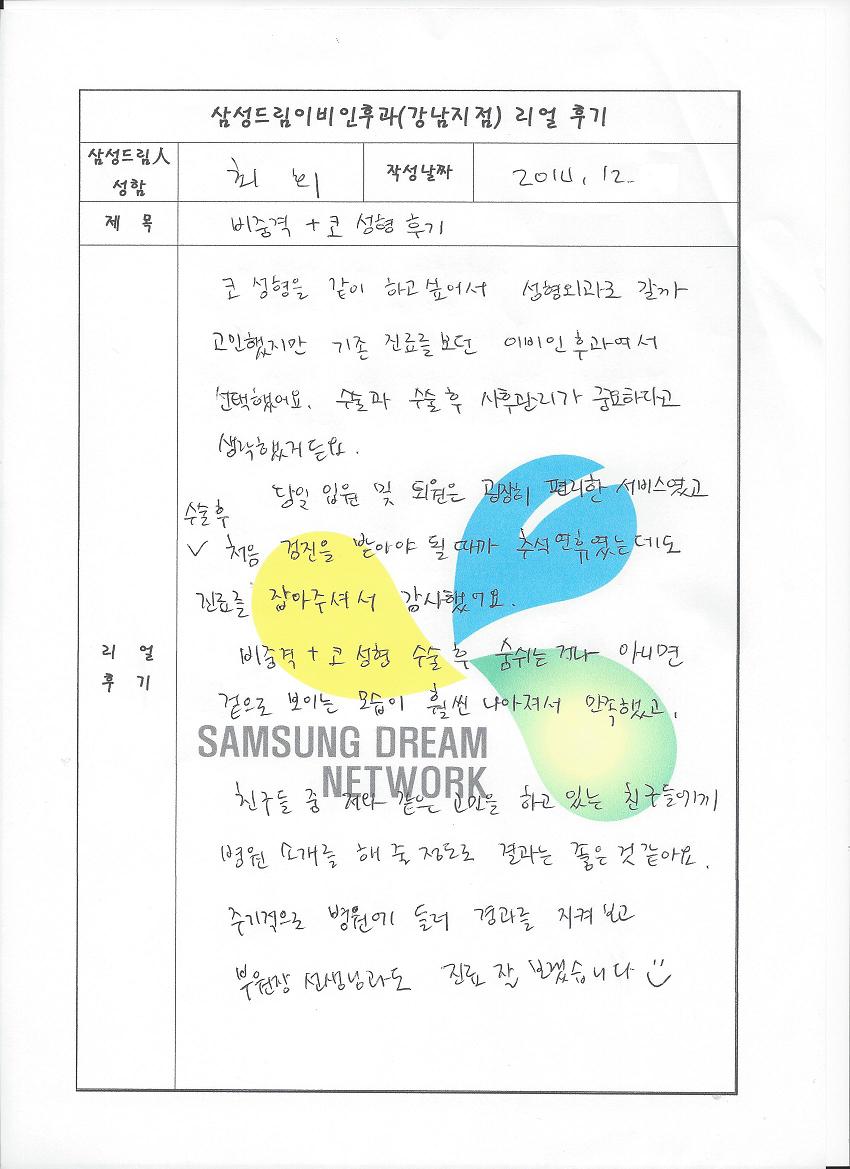 삼성드림이비인후과(강남지점) 리얼 후기
삼성드림人 성함 최 비 작성날짜 2014. 12.
제 목 비중격 + 코 성형 후기
리 얼
후 기
코 성형을 같이 하고 싶어서 성형외과로 갈까
고민했지만 기존 진료를 보던 이비인후과여서
선택했어요. 수술과 수술 후 사후관리가 중요하다고
생각했거든요.
당일 입원 및 퇴원은 굉장히 편리한 서비스였고
수술 후
✓ 처음 검진을 받아야 될 때가 추석 연휴였는데도
진료를 잡아주셔서 감사했어요.
비중격 + 코 성형 수술 후 숨쉬는 거나 아니면
겉으로 보이는 모습이 훨씬 나아져서 만족했고,
SAMSUNG DREAM
NETWORK
친구들 중 저와 같은 고민을 하고 있는 친구들에게
병원 소개를 해 줄 정도로 결과는 좋은 것 같아요.
주기적으로 병원에 들러 경과를 지켜보고
부원장 선생님과도 진료 잘 보겠습니다